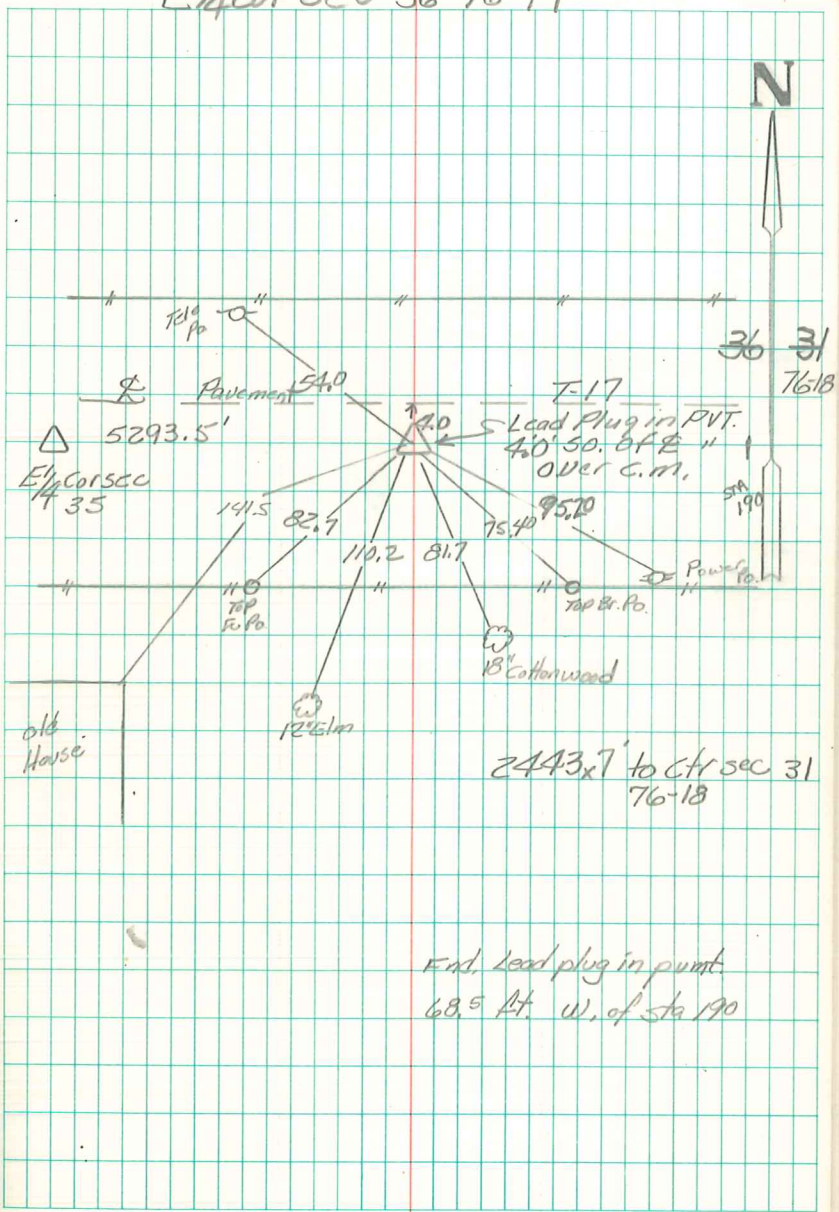 E 1/4 Cor Sec 36-76-19
N
Tele
Po
36 31
76-18
℄ Pavement 54.0
T-17
4.0
Lead Plug in PVT.
4.0' So. of ℄ "
over c.m.
△ 5293.5'
E 1/4 Cor sec
35
STA
190
141.5
82.7
110.2
81.7
75.40
95.20
Top
Fe Po.
Top Br. Po.
Power Po.
18" Cottonwood
12" Elm
old
House
2443.7' to Ctr sec 31
76-18
Fnd. Lead plug in pvmt.
68.5 ft. W. of sta 190